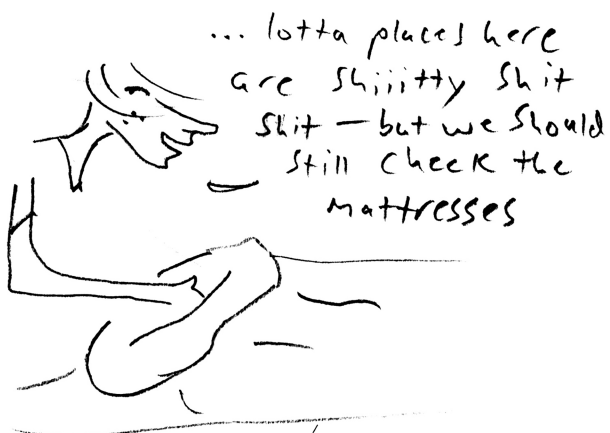 ... lotta places here
are shiiitty shit
shit — but we should
still check the
mattresses